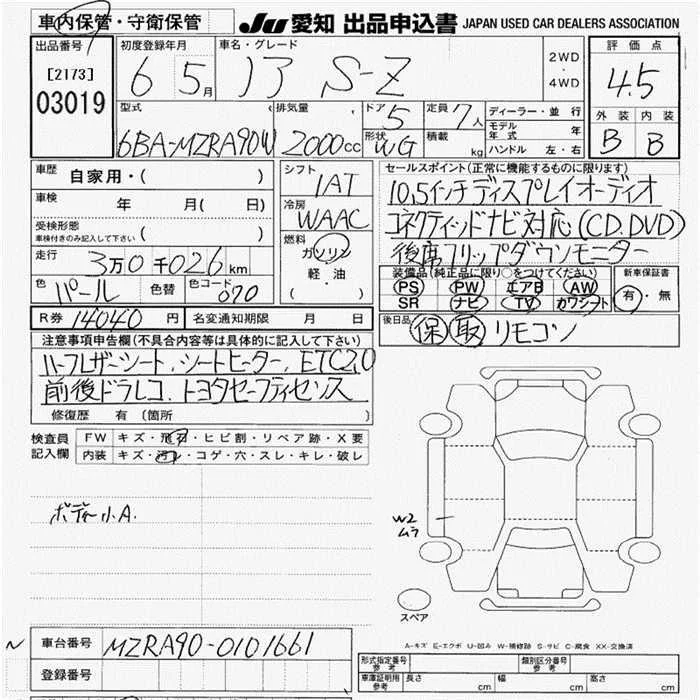 車内保管・守衛保管
JU 愛知 出品申込書 JAPAN USED CAR DEALERS ASSOCIATION
出品番号
[2173]
03019
初度登録年月
6 5月
車名・グレード
ﾉｱ S-Z
2WD
・
4WD
評価点
4.5
外装 内装
B B
型式
6BA-MZRA90W
排気量
2000cc
ドア
5
形状
WG
定員
7人
積載 kg
ディーラー・並行
モデル年式 年
ハンドル 左・右
車歴 自家用・( )
車検 年 月( 日)
受検形態
車検付きのみ記入して下さい ( )
走行 3万0千026km
色 パール 色替 色コード 070
シフト
IAT
冷房
WAAC
燃料
ガソリン
軽・油
( )
セールスポイント(正常に機能するものに限ります)
10.5インチディスプレイオーディオ
コネクティッドナビ対応(CD.DVD)
後席フリップダウンモニター
装備品(純正品に限り○をつけてください)
PS PW エアB AW
SR ナビ TV カワシート
新車保証書
有・無
R券 14040円 名変通知期限 月 日
後日品 保 取 リモコン
注意事項申告欄(不具合内容等は具体的に記入して下さい)
ハーフレザーシート、シートヒーター、ETC2.0
前後ドラレコ、トヨタセーフティセンス
修復歴 有〔箇所 〕
検査員記入欄
FW キズ・飛石・ヒビ割・リペア跡・X要
内装 キズ・汚レ・コゲ・穴・スレ・キレ・破レ
ボディー小A.
W2
ムラ
スペア
A-キズ E-エクボ U-凹み W-補修跡 S-サビ C-腐食 XX-交換済
車台番号 MZRA90-0101661
登録番号
形式指定番号 参考
類別区分番号 参考
車庫証明用 参考 長さ cm 幅 cm 高さ cm